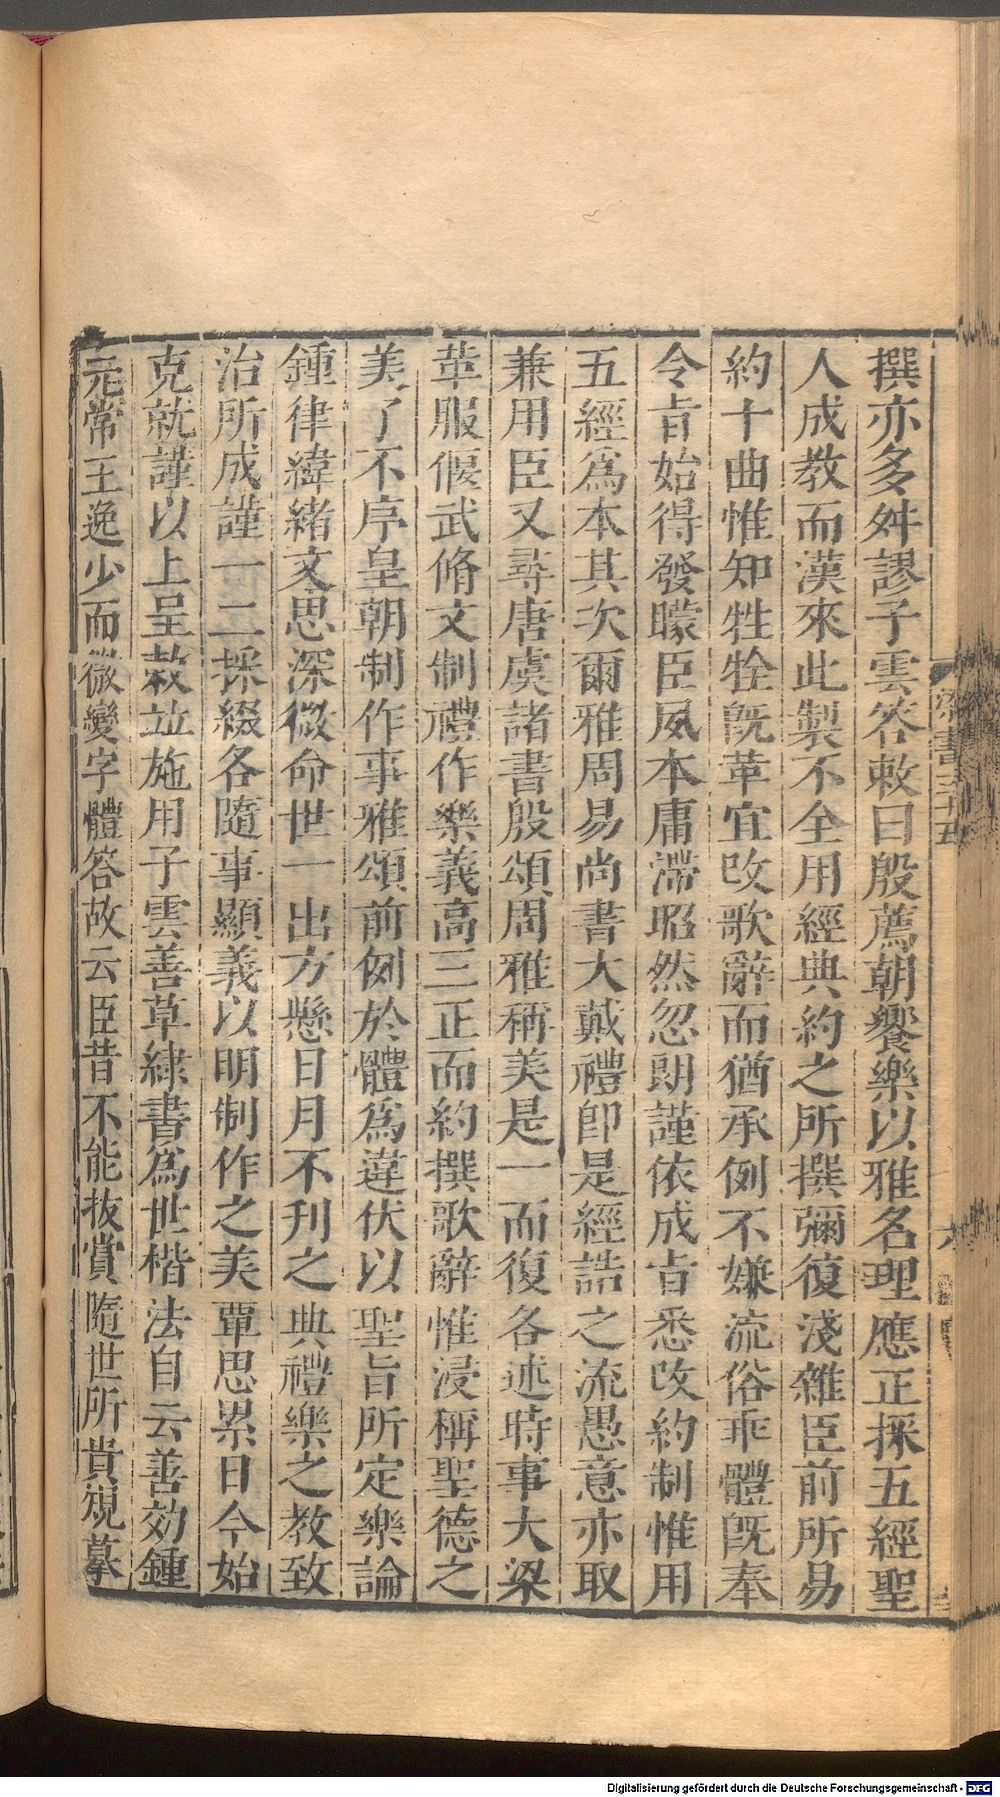 撰亦多舛謬子雲答敕曰殷薦朝饗樂以雅名理應正採五經聖
人成教而漢來此製不全用經典約之所撰彌復淺雜臣前所易
約十曲惟知牲牷旣革宜改歌辭而猶承例不嫌流俗乖體旣奉
令旨始得發矇臣夙本庸滯昭然忽朗謹依成旨悉改約制惟用
五經爲本其次爾雅周易尚書大戴禮即是經誥之流愚意亦取
兼用臣又尋唐虞諸書殷頌周雅稱美是一而復各述時事大梁
革服偃武脩文制禮作樂義高三正而約撰歌辭惟浸稱聖德之
美了不序皇朝制作事雅頌前例於體爲違伏以聖旨所定樂論
鍾律緯緒文思深微命世一出方懸日月不刊之典禮樂之教致
治所成謹一二採綴各隨事顯義以明制作之美覃思累日今始
克就謹以上呈敕竝施用子雲善草隸書爲世楷法自云善効鍾
元常王逸少而微變字體答故云臣昔不能拔賞隨世所貴規摹
梁書三十五
六
Digitalisierung gefördert durch die Deutsche Forschungsgemeinschaft - DFG